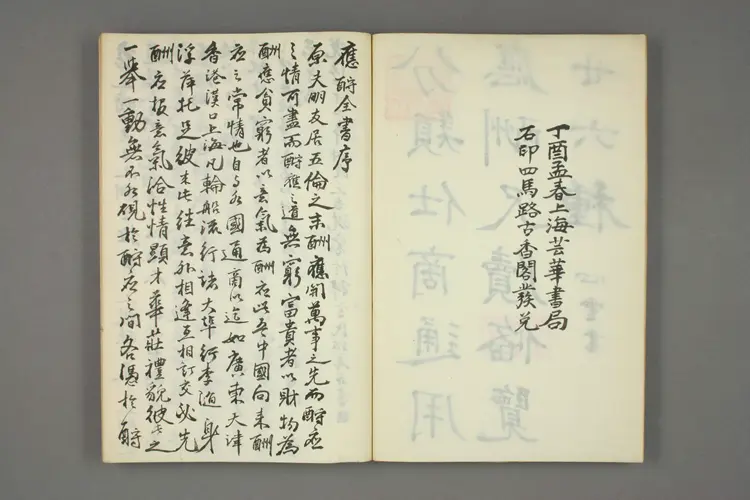 丁酉孟春上海芸華書局
石印四馬路古香閣發兌
廿六種
應酬尺牘格覽
分類仕商通用
應酧全書序
原夫朋友居五倫之末酬應開萬事之先而酧應
之情可盡而酧應之道無窮富貴者以財物為
酬應貧窮者以意氣為酬應此吾中國向來酬
應之常情也自與各國通商以迄如廣東天津
香港漢口上海凡輪船流行諸大埠行李隨身
浮萍托足彼來此往意外相逢互相訂交必先
酬應叙意氣洽性情顯才華莊禮貌彼此之
一舉一動無不於酧應之间各憑於酧